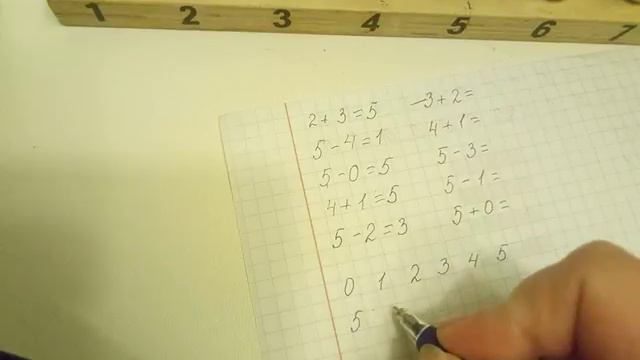 1 2 3 4 5 6 7
2+3=5 -3+2=
5-4=1 4+1=
5-0=5 5-3=
4+1=5 5-1=
5-2=3 5+0=
0 1 2 3 4 5
5